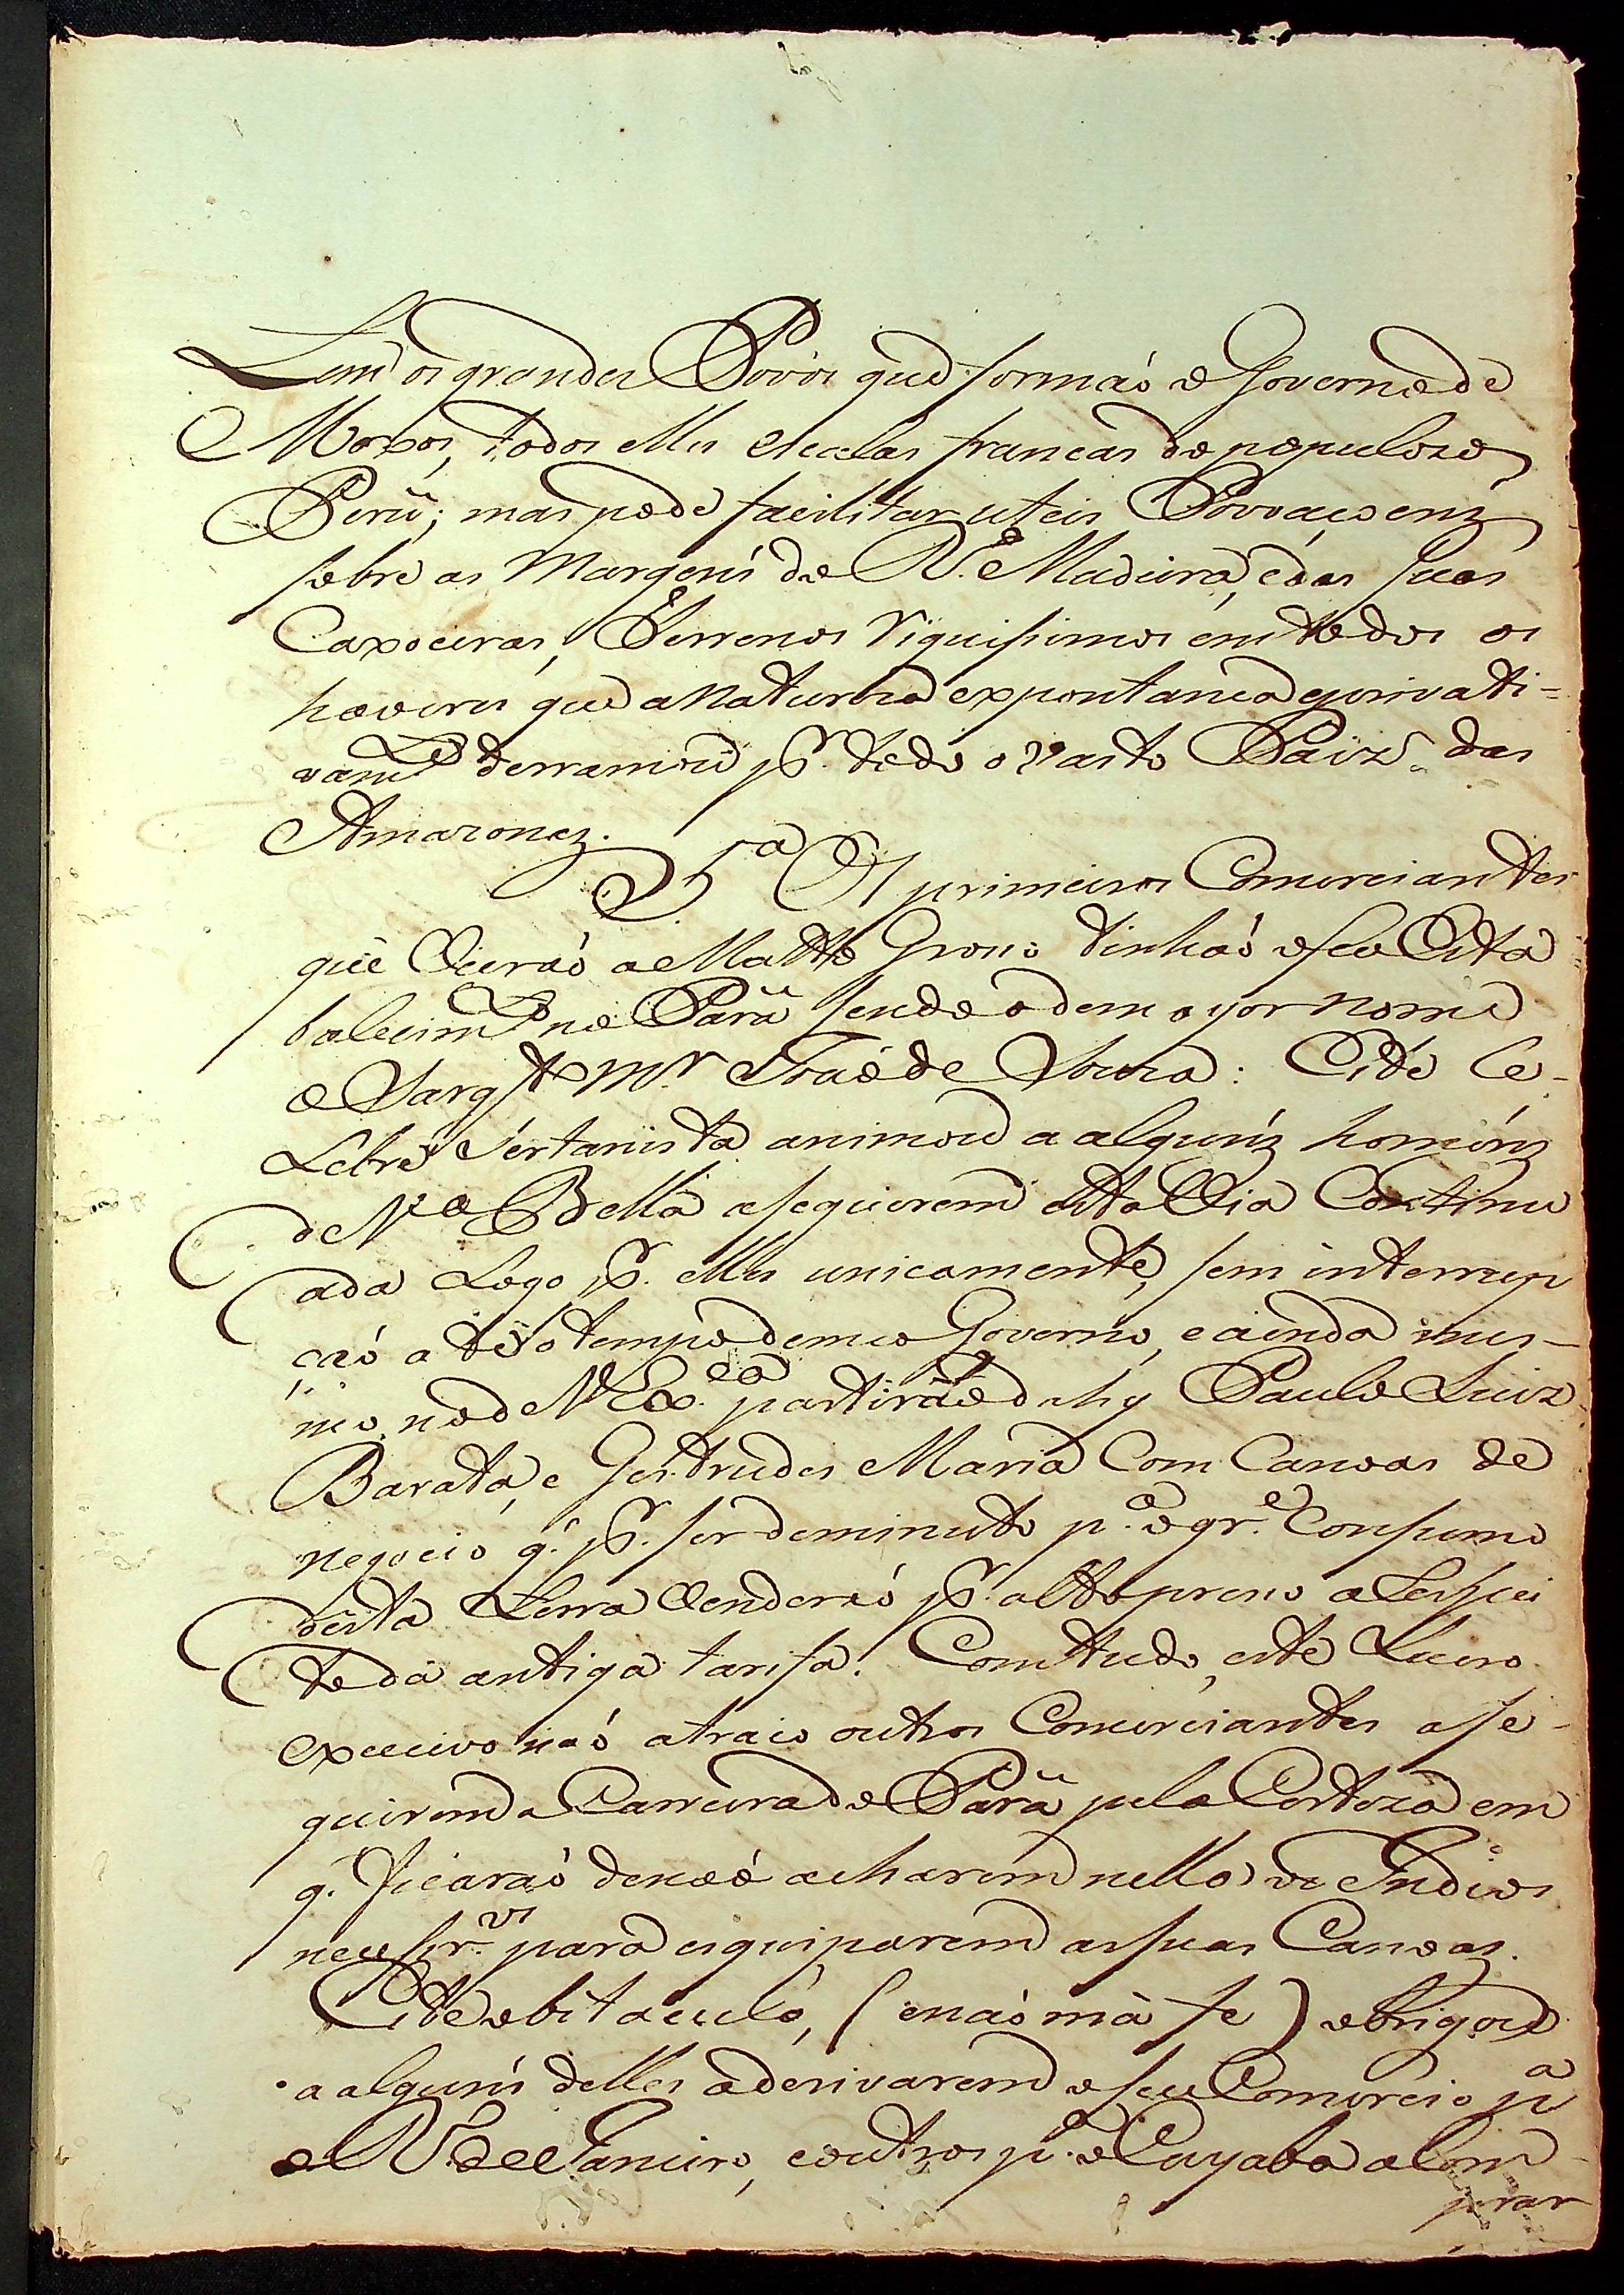 Com os grandes Povos que formaõ o Governo de
Moxos, todos elles escalas francas do populozo
Perú; mas pode facilitar uteis Povoaçoenz
sobre as Margens do R.º Madeira, e das suas
Caxoeiras, Terrenos riquisimos em todos os
haveres que a Natureza expontanea e privati=
vamte derramou pr. todo o vasto Paiz das
Amazonez.
5ª Os primeiros Comerciantes
que vieraõ a Matto Groso tinhaõ o seu Esta
balecimto no Pará sendo o de mayor nome
o Sargto Mr Joaõ de Souza: Este Ce-
lebre Sertanista animou a alguñz homẽnz
de Va Bella a seguirem esta via Continu
ada logo pr. elles unicamente, sem interrup
çaõ até o tempo de meo Governo, e ainda mes-
mo no de V Exca. partiraõ dahy Paulo Luiz
Barata, e Gertrudes Maria Com Canoas de
negocio q. pr. ser deminuto pa. o gre. Consumo
desta Terra venderaõ pr. alto preso a Respei
to da antiga tarifa. Comtudo, este Lucro
excecivo naõ atraio outros Comerciantes a se-
guirem a Carreira do Pará pela Certeza em
q. ficaraõ de naõ acharem nello os Indios
necesros. para esquiparem as suas Canoas.
Este obstaculo, (e naõ má fe) obrigou
a alguns delles a derivarem o seu Comercio pa
o R.º de Janeiro, e outros pa. o Cuyaba a Com
prar